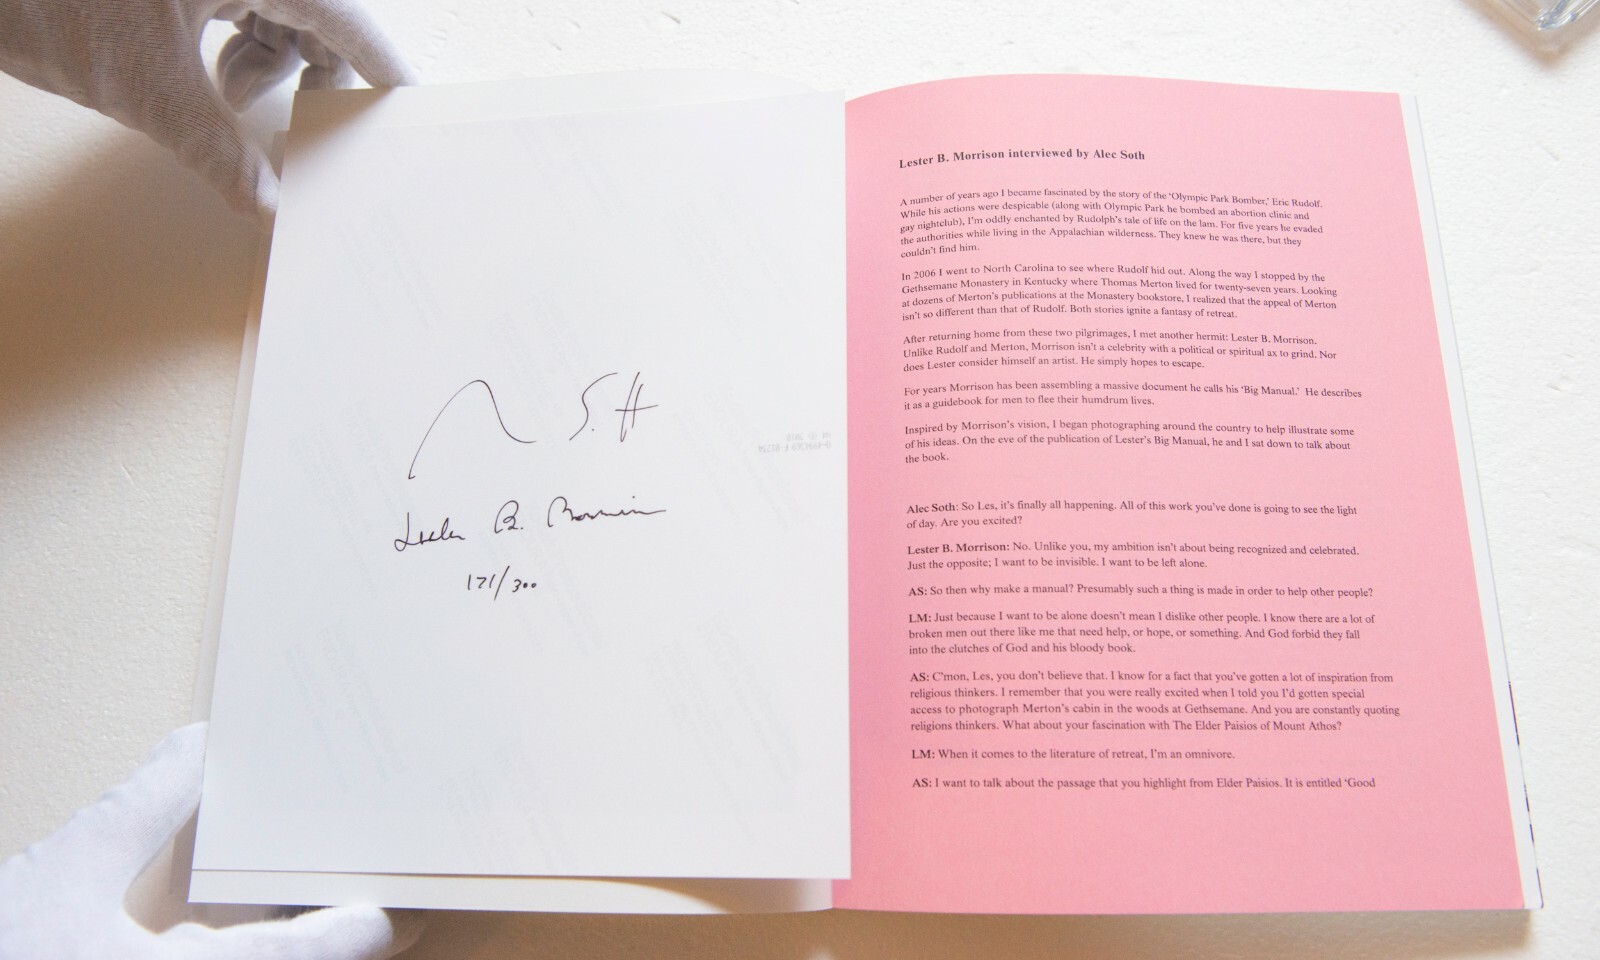 Lester B. Morrison
171/300
Lester B. Morrison interviewed by Alec Soth
A number of years ago I became fascinated by the story of the 'Olympic Park Bomber,' Eric Rudolf.
While his actions were despicable (along with Olympic Park he bombed an abortion clinic and
gay nightclub), I'm oddly enchanted by Rudolph's tale of life on the lam. For five years he evaded
the authorities while living in the Appalachian wilderness. They knew he was there, but they
couldn't find him.
In 2006 I went to North Carolina to see where Rudolf hid out. Along the way I stopped by the
Gethsemane Monastery in Kentucky where Thomas Merton lived for twenty-seven years. Looking
at dozens of Merton's publications at the Monastery bookstore, I realized that the appeal of Merton
isn't so different than that of Rudolf. Both stories ignite a fantasy of retreat.
After returning home from these two pilgrimages, I met another hermit: Lester B. Morrison.
Unlike Rudolf and Merton, Morrison isn't a celebrity with a political or spiritual ax to grind. Nor
does Lester consider himself an artist. He simply hopes to escape.
For years Morrison has been assembling a massive document he calls his 'Big Manual.' He describes
it as a guidebook for men to flee their humdrum lives.
Inspired by Morrison's vision, I began photographing around the country to help illustrate some
of his ideas. On the eve of the publication of Lester's Big Manual, he and I sat down to talk about
the book.
Alec Soth: So Les, it's finally all happening. All of this work you've done is going to see the light
of day. Are you excited?
Lester B. Morrison: No. Unlike you, my ambition isn't about being recognized and celebrated.
Just the opposite; I want to be invisible. I want to be left alone.
AS: So then why make a manual? Presumably such a thing is made in order to help other people?
LM: Just because I want to be alone doesn't mean I dislike other people. I know there are a lot of
broken men out there like me that need help, or hope, or something. And God forbid they fall
into the clutches of God and his bloody book.
AS: C'mon, Les, you don't believe that. I know for a fact that you've gotten a lot of inspiration from
religious thinkers. I remember that you were really excited when I told you I'd gotten special
access to photograph Merton's cabin in the woods at Gethsemane. And you are constantly quoting
religions thinkers. What about your fascination with The Elder Paisios of Mount Athos?
LM: When it comes to the literature of retreat, I'm an omnivore.
AS: I want to talk about the passage that you highlight from Elder Paisios. It is entitled 'Good